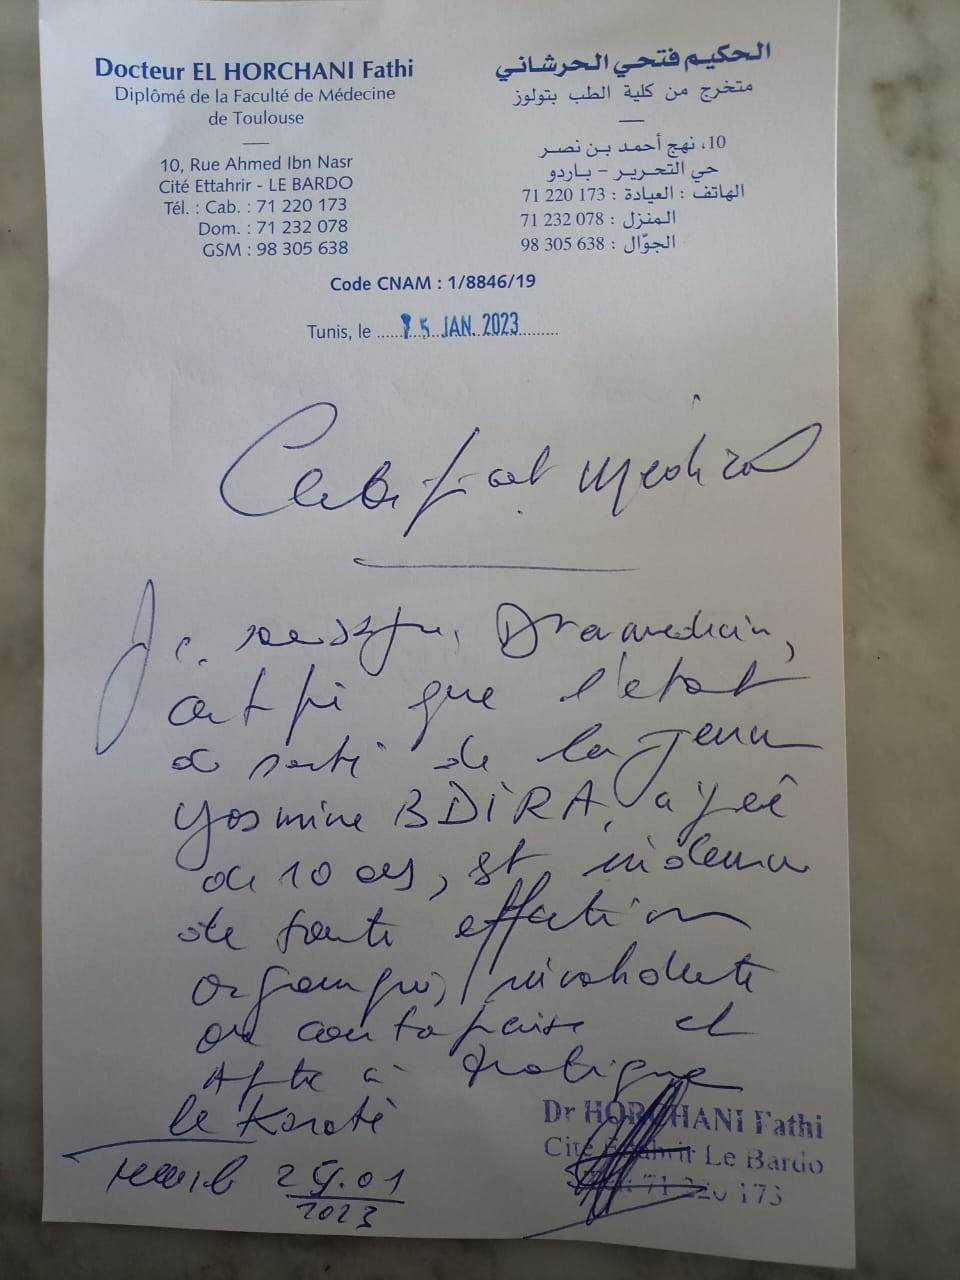 Docteur EL HORCHANI Fathi
Diplômé de la Faculté de Médecine
de Toulouse
10, Rue Ahmed Ibn Nasr
Cité Ettahrir - LE BARDO
Tél. : Cab. : 71 220 173
Dom. : 71 232 078
GSM : 98 305 638
الحكيم فتحي الحرشاني
متخرج من كلية الطب بتولوز
10، نهج أحمد بن نصر
حي التحرير - باردو
الهاتف : العيادة : 173 220 71
المنزل : 078 232 71
الجوّال : 638 305 98
Code CNAM : 1/8846/19
Tunis, le ...... 5 JAN. 2023.........
Certificat médical
Je soussigné, Dr en médecin,
certifie que l'état
de santé de la jeune
Yosmine BDIRA, âgée
de 10 ans, est indemne
de toute affection
organique,
ou contagieuse et
Apte à pratiquer
le Karaté
25.01
2023
Dr HORCHANI Fathi
Cité Ettahrir Le Bardo
71 220 173